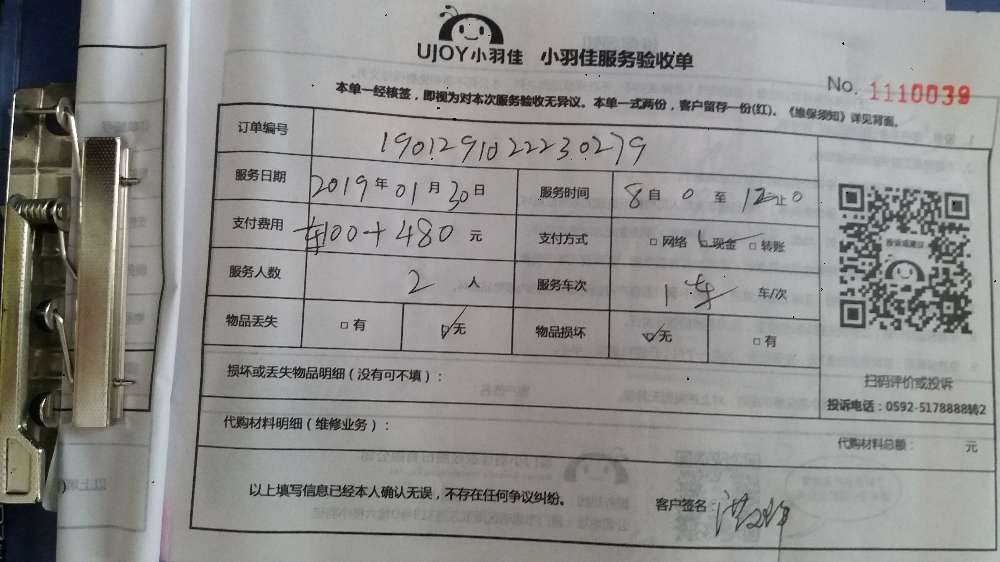 UJOY小羽佳 小羽佳服务验收单
No. 1110039
本单一经核签，即视为对本次服务验收无异议。本单一式两份，客户留存一份(红)。《维保须知》详见背面。
订单编号 1901291022230279
服务日期 2019年01月30日 服务时间 8自0至12止0
支付费用 车100+480元 支付方式 □网络 □现金 □转账
服务人数 2人 服务车次 1车 车/次
物品丢失 □有 □无 物品损坏 □无 □有
损坏或丢失物品明细（没有可不填）：
投诉或建议
扫码评价或投诉
投诉电话：0592-5178888转2
代购材料明细（维修业务）： 代购材料总额： 元
以上填写信息已经本人确认无误，不存在任何争议纠纷。 客户签名：